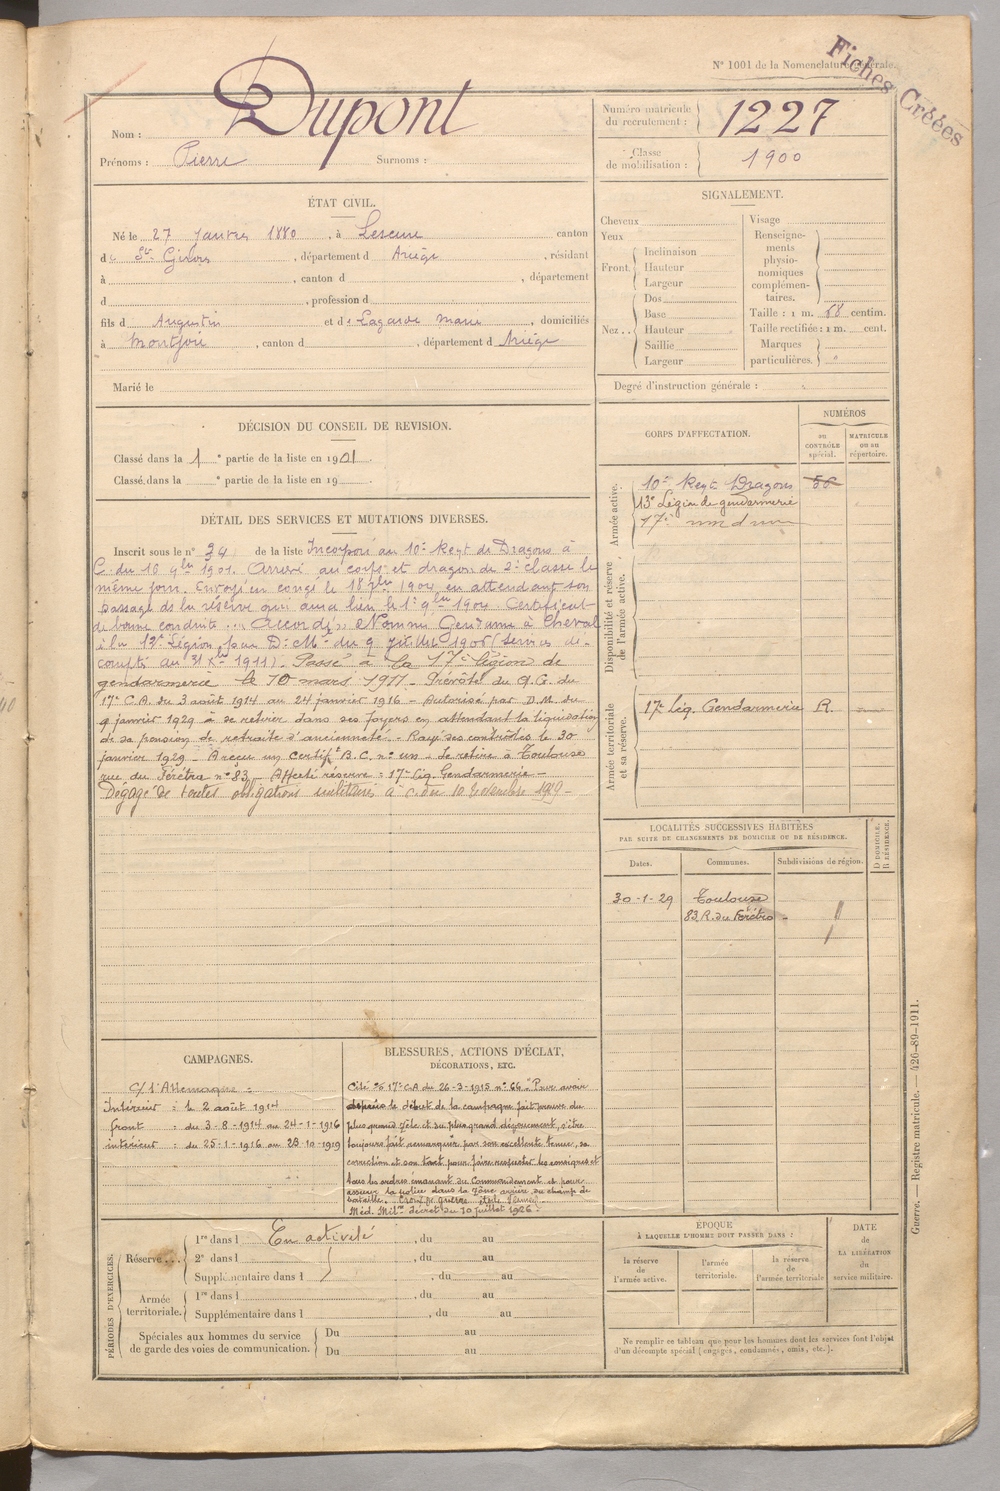 N° 1001 de la Nomenclature générale.
Fiches Créées
Nom : Dupont
Prénoms : Pierre Surnoms :
Numéro matricule du recrutement : 1227
Classe de mobilisation : 1900
ÉTAT CIVIL.
Né le 27 Janvier 1880, à Lescure canton
de St Girons, département d Ariège, résidant
à , canton d , département
d , profession d
fils d Augustin et de Lagarde Marie, domiciliés
à Montjoie, canton d , département d Ariège
Marié le
SIGNALEMENT.
Cheveux
Yeux
Front. Inclinaison
Hauteur
Largeur
Nez.. Dos
Base
Hauteur
Saillie
Largeur
Visage
Renseigne-
ments
physio-
nomiques
complémen-
taires.
Taille : 1 m. 68 centim.
Taille rectifiée : 1 m. cent.
Marques
particulières.
Degré d'instruction générale :
DÉCISION DU CONSEIL DE REVISION.
Classé dans la 1 e partie de la liste en 1901.
Classé dans la e partie de la liste en 19 .
DÉTAIL DES SERVICES ET MUTATIONS DIVERSES.
Inscrit sous le n° 34 de la liste Incorporé au 10e Regt de Dragons à
C. du 16 9bre 1901. Arrivé au corps et dragon de 2e classe le
même jour. Envoyé en congé le 18 7bre 1904 en attendant son
passage ds la réserve qui aura lieu le 1er 9bre 1904. Certificat
de bonne conduite ... Accordé. Nommé Gendarme à cheval
à la 13e Légion par D. Mle du 9 Juillet 1906 (services dé-
comptés au 31 Xbre 1911). Passé à la 17e légion de
gendarmerie le 10 mars 1911. Prévôté du Q.G. du
17e C.A. du 3 août 1914 au 24 janvier 1916 - Autorisé par D.M. du
9 janvier 1929 à se retirer dans ses foyers en attendant la liquidation
de sa pension de retraite d'ancienneté. - Rayé des contrôles le 30
janvier 1929 - A reçu un certift B.C. n° un - Se retire à Toulouse
rue du Férétra n° 83 - Affecté réserve : 17e Lég. Gendarmerie -
Dégagé de toutes obligations militaires à c. du 10 Novembre 1929 -
CORPS D'AFFECTATION.
NUMÉROS
au CONTRÔLE spécial.
MATRICULE ou au répertoire.
Armée active.
10e Regt Dragons 56
13e Légion de gendarmerie
17e
Disponibilité et réserve de l'armée active.
Armée territoriale et sa réserve.
17e Lég. Gendarmerie R.
LOCALITÉS SUCCESSIVES HABITÉES
PAR SUITE DE CHANGEMENTS DE DOMICILE OU DE RÉSIDENCE.
Dates. Communes. Subdivisions de région.
D DOMICILE.
R RÉSIDENCE.
30-1-29 Toulouse
83 R. du Férétra
CAMPAGNES.
C/ l'Allemagne :
Intérieur : le 2 août 1914
front : du 3-8-1914 au 24-1-1916
intérieur : du 25-1-1916 au 23-10-1919
BLESSURES, ACTIONS D'ÉCLAT,
DÉCORATIONS, ETC.
Cité 17e C.A du 26-3-1915 n° 66 "Pour avoir
depuis le début de la campagne fait preuve du
plus grand zèle et du plus grand dévouement, s'être
toujours fait remarquer par son excellente tenue, sa
correction et son tact pour faire respecter les consignes et
tous les ordres émanant du Commandement et pour
assurer la police dans la zone arrière du champ de
bataille. Croix de guerre
Méd. Milre décret du 10 juillet 1926 -
PÉRIODES D'EXERCICES.
Réserve... 1re dans l En activité , du au
2e dans l , du au
Supplémentaire dans l , du au
Armée territoriale. 1re dans l , du au
Supplémentaire dans l , du au
Spéciales aux hommes du service
de garde des voies de communication. Du au
Du au
ÉPOQUE
À LAQUELLE L'HOMME DOIT PASSER DANS :
la réserve de l'armée active.
l'armée territoriale.
la réserve de l'armée territoriale
DATE
de
LA LIBÉRATION
du
service militaire.
Ne remplir ce tableau que pour les hommes dont les services font l'objet
d'un décompte spécial (engagés, condamnés, omis, etc.).
Guerre. — Registre matricule. — 426-89-1911.